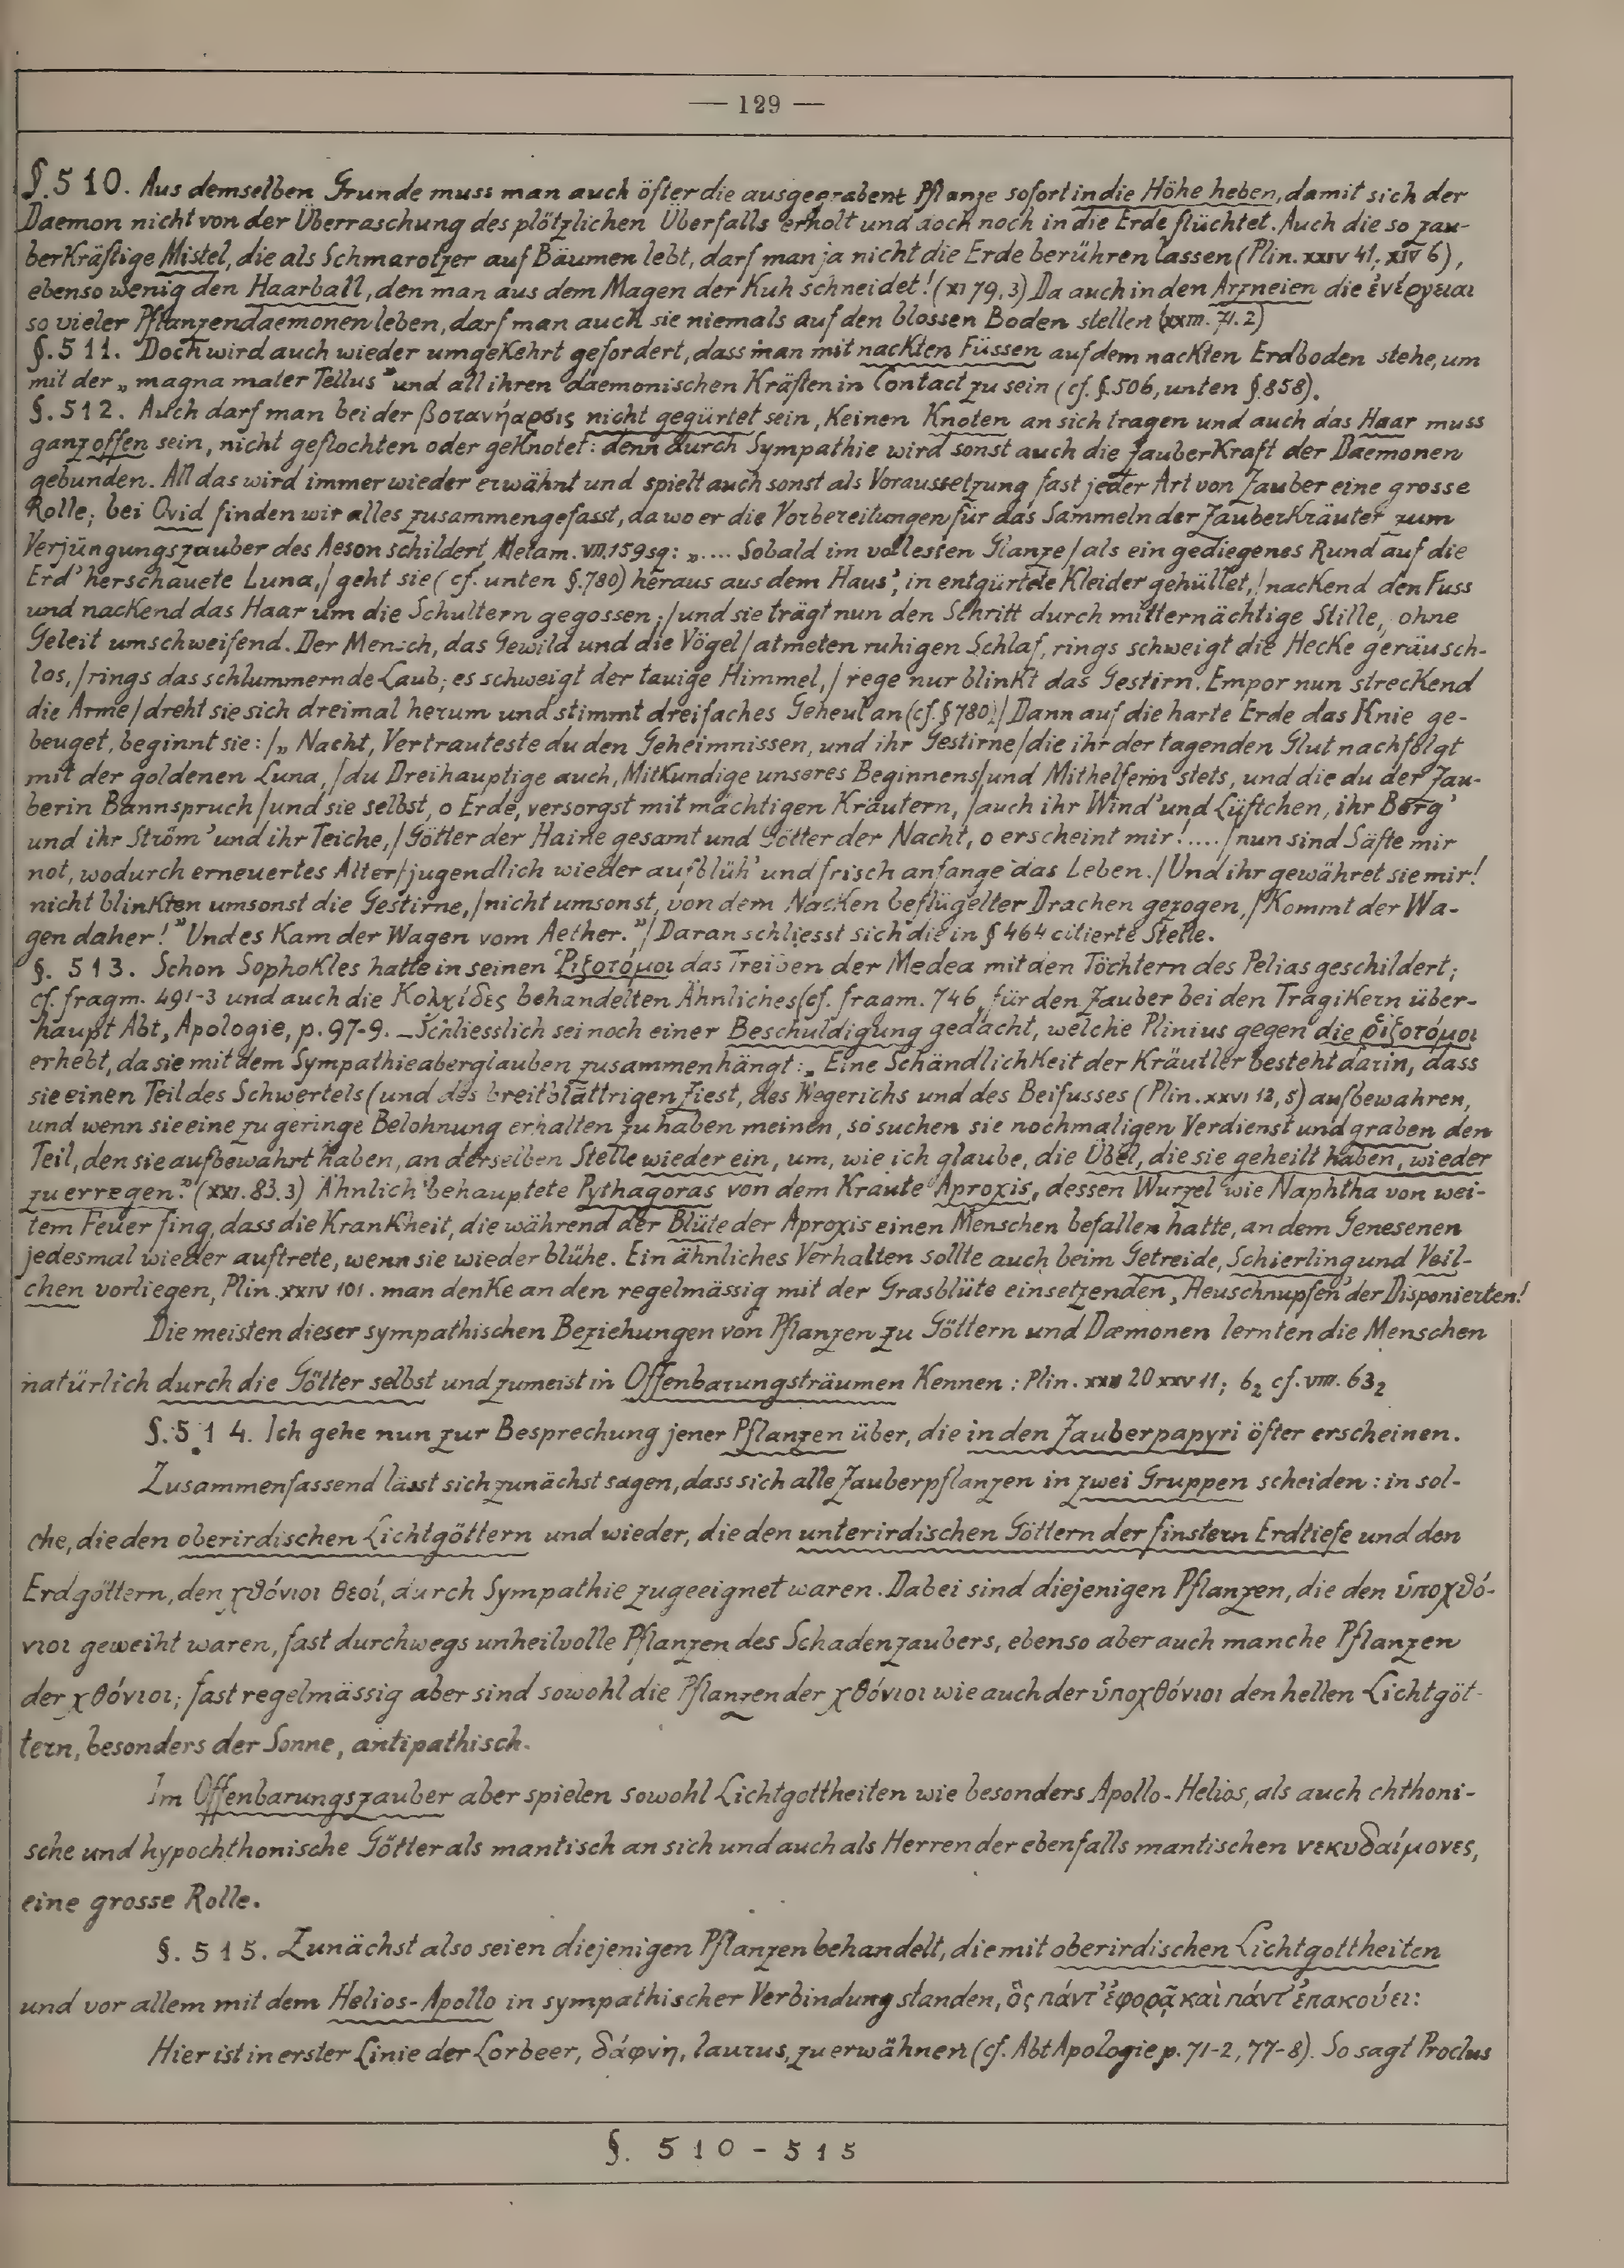 — 129 —
§. 510. Aus demselben Grunde muss man auch öfter die ausgegrabene Pflanze sofort in die Höhe heben, damit sich der
Daemon nicht von der Überraschung des plötzlichen Überfalls erholt und doch noch in die Erde flüchtet. Auch die so zau-
berkräftige Mistel, die als Schmarotzer auf Bäumen lebt, darf man ja nicht die Erde berühren lassen (Plin. XXIV 41. XIV 6),
ebenso wenig den Haarball, den man aus dem Magen der Kuh schneidet! (XI 79, 3) Da auch in den Arzneien die ἐνέργειαι
so vieler Pflanzendaemonen leben, darf man auch sie niemals auf den blossen Boden stellen (XXIII. 71. 2)
§. 511. Doch wird auch wieder umgekehrt gefordert, dass man mit nackten Füssen auf dem nackten Erdboden stehe, um
mit der „magna mater Tellus" und all ihren daemonischen Kräften in Contact zu sein (cf. §. 506, unten §. 858).
§. 512. Auch darf man bei der βοτανήαρσις nicht gegürtet sein, keinen Knoten an sich tragen und auch das Haar muss
ganz offen sein, nicht geflochten oder geknotet: denn durch Sympathie wird sonst auch die Zauberkraft der Daemonen
gebunden. All das wird immer wieder erwähnt und spielt auch sonst als Voraussetzung fast jeder Art von Zauber eine grosse
Rolle; bei Ovid finden wir alles zusammengefasst, da wo er die Vorbereitungen für das Sammeln der Zauberkräuter zum
Verjüngungszauber des Aeson schildert, Metam. VII, 159 sq: „.... Sobald im vollesten Glanze / als ein gediegenes Rund auf die
Erd' herschauete Luna, / geht sie (cf. unten §. 780) heraus aus dem Haus', in entgürtete Kleider gehüllet, / nackend den Fuss
und nackend das Haar um die Schultern gegossen; / und sie trägt nun den Schritt durch mitternächtige Stille, ohne
Geleit umschweifend. Der Mensch, das Gewild und die Vögel / atmeten ruhigen Schlaf, rings schweigt die Hecke geräusch-
los, / rings das schlummernde Laub; es schweigt der tauige Himmel, / rege nur blinkt das Gestirn. Empor nun streckend
die Arme / dreht sie sich dreimal herum und stimmt dreifaches Geheul an (cf. § 780) / Dann auf die harte Erde das Knie ge-
beuget, beginnt sie: / „Nacht, Vertrauteste du den Geheimnissen, und ihr Gestirne / die ihr der tagenden Glut nachfolgt
mit der goldenen Luna, / du Dreihauptige auch, Mitkundige unseres Beginnens / und Mithelferin stets, und die du der Zau-
berin Bannspruch / und sie selbst, o Erde, versorgst mit mächtigen Kräutern, / auch ihr Wind' und Lüftchen, ihr Berg'
und ihr Ström' und ihr Teiche, / Götter der Haine gesamt und Götter der Nacht, o erscheint mir! ..... / nun sind Säfte mir
not, wodurch erneuertes Alter / jugendlich wieder aufblüh' und frisch anfange das Leben. / Und ihr gewähret sie mir!
nicht blinkten umsonst die Gestirne, / nicht umsonst, von dem Nacken beflügelter Drachen gezogen, / Kommt der Wa-
gen daher!" Und es kam der Wagen vom Aether." / Daran schliesst sich die in § 464 citierte Stelle.
§. 513. Schon Sophokles hatte in seinen Ῥιζοτόμοι das Treiben der Medea mit den Töchtern des Pelias geschildert;
cf. fragm. 491-3 und auch die Κολχίδες behandelten Ähnliches (cf. fragm. 746, für den Zauber bei den Tragikern über-
haupt Abt, Apologie, p. 97-9. – Schliesslich sei noch einer Beschuldigung gedacht, welche Plinius gegen die ῥιζοτόμοι
erhebt, da sie mit dem Sympathieaberglauben zusammenhängt: „Eine Schändlichkeit der Kräutler besteht darin, dass
sie einen Teil des Schwertels (und des breitblättrigen Ziest, des Wegerichs und des Beifusses (Plin. XXVI 12, 5) aufbewahren,
und wenn sie eine zu geringe Belohnung erhalten zu haben meinen, so suchen sie nochmaligen Verdienst und graben den
Teil, den sie aufbewahrt haben, an derselben Stelle wieder ein, um, wie ich glaube, die Übel, die sie geheilt haben, wieder
zu erregen." (XXI. 83. 3) Ähnlich behauptete Pythagoras von dem Kraute Aproxis, dessen Wurzel wie Naphtha von wei-
tem Feuer fing, dass die Krankheit, die während der Blüte der Aproxis einen Menschen befallen hatte, an dem Genesenen
jedesmal wieder auftrete, wenn sie wieder blühe. Ein ähnliches Verhalten sollte auch beim Getreide, Schierling und Veil-
chen vorliegen, Plin. XXIV 101. man denke an den regelmässig mit der Grasblüte einsetzenden „Heuschnupfen" der Disponierten!
Die meisten dieser sympathischen Beziehungen von Pflanzen zu Göttern und Dæmonen lernten die Menschen
natürlich durch die Götter selbst und zumeist in Offenbarungsträumen kennen: Plin. 20 XXV 11; 6₂ cf. VIII. 63₂
§. 514. Ich gehe nun zur Besprechung jener Pflanzen über, die in den Zauberpapyri öfter erscheinen.
Zusammenfassend lässt sich zunächst sagen, dass sich alle Zauberpflanzen in zwei Gruppen scheiden: in sol-
che, die den oberirdischen Lichtgöttern und wieder, die den unterirdischen Göttern der finstern Erdtiefe und den
Erdgöttern, den χθόνιοι θεοί, durch Sympathie zugeeignet waren. Dabei sind diejenigen Pflanzen, die den ὑποχθό-
νιοι geweiht waren, fast durchwegs unheilvolle Pflanzen des Schadenzaubers, ebenso aber auch manche Pflanzen
der χθόνιοι; fast regelmässig aber sind sowohl die Pflanzen der χθόνιοι wie auch der ὑποχθόνιοι den hellen Lichtgöt-
tern, besonders der Sonne, antipathisch.
Im Offenbarungszauber aber spielen sowohl Lichtgottheiten wie besonders Apollo-Helios, als auch chthoni-
sche und hypochthonische Götter als mantisch an sich und auch als Herren der ebenfalls mantischen νεκυδαίμονες,
eine grosse Rolle.
§. 515. Zunächst also seien diejenigen Pflanzen behandelt, die mit oberirdischen Lichtgottheiten
und vor allem mit dem Helios-Apollo in sympathischer Verbindung standen, ὃς πάντ' ἐφορᾷ καὶ πάντ' ἐπακούει:
Hier ist in erster Linie der Lorbeer, δάφνη, laurus, zu erwähnen (cf. Abt Apologie p. 71-2, 77-8). So sagt Proclus
§. 510 - 515